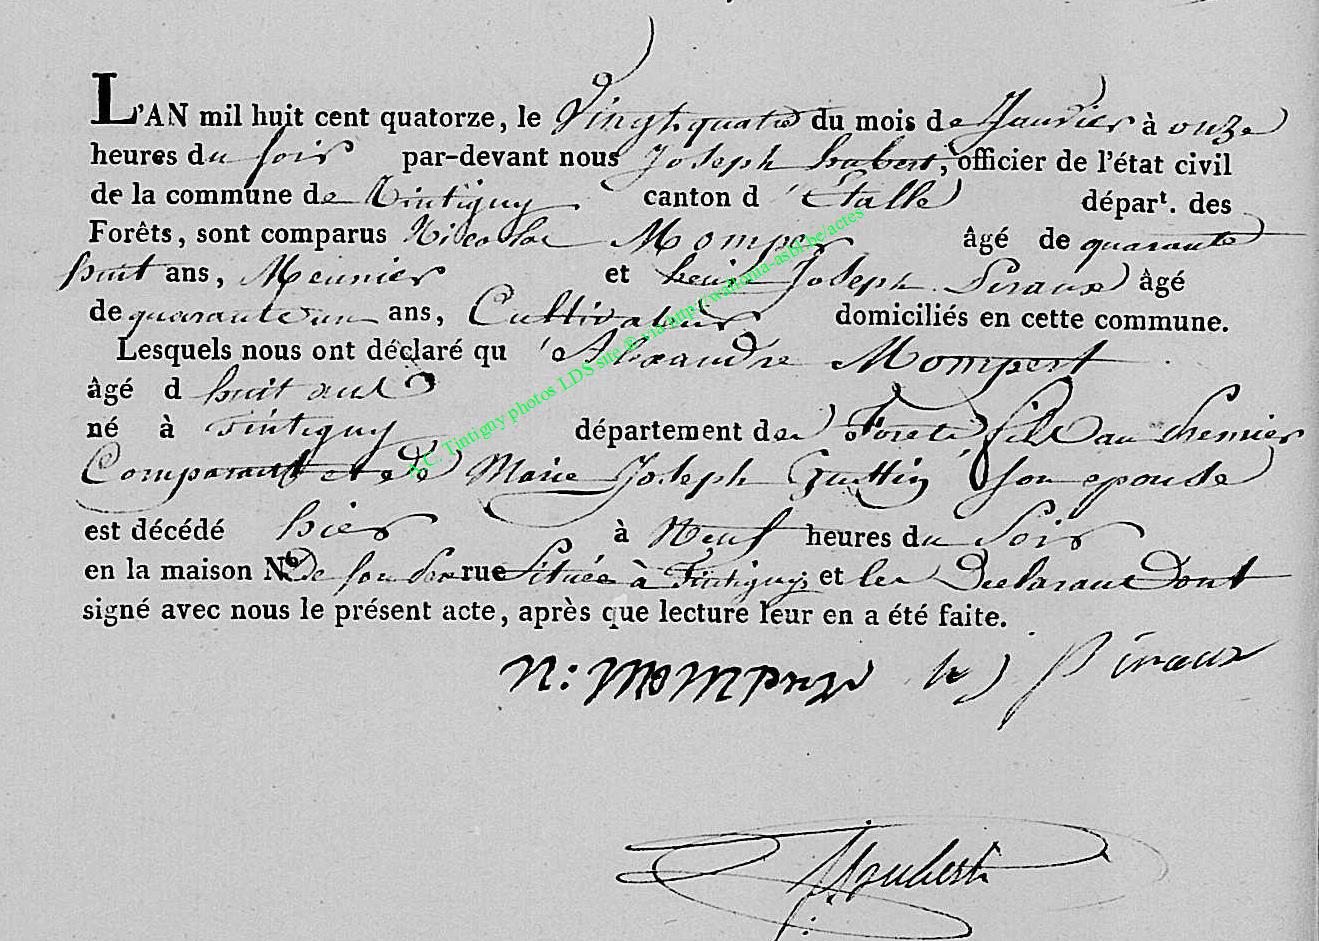 L'AN mil huit cent quatorze, le Vingt quatre du mois de Janvier à onze
heures du soir par-devant nous Joseph officier de l'état civil
de la commune de Tintigny canton d'Etalle départ. des
Forêts, sont comparus Nicolas Momper âgé de quarante
huit ans, Meunier et henri Joseph Piraux âgé
de quarante un ans, Cultivateur domiciliés en cette commune.
Lesquels nous ont déclaré qu'Alexandre Mompert
âgé d huit ans
né à Tintigny département des Forets fils au premier
Comparant et de Marie Joseph son epouse
est décédé hier à Neuf heures du Soir
en la maison No de son pere rue Située à Tintigny et les Declarans ont
signé avec nous le présent acte, après que lecture leur en a été faite.
n: h j piraux
A.C. Tintigny photos LDS site E via http://wallonia-asbl.be/actes